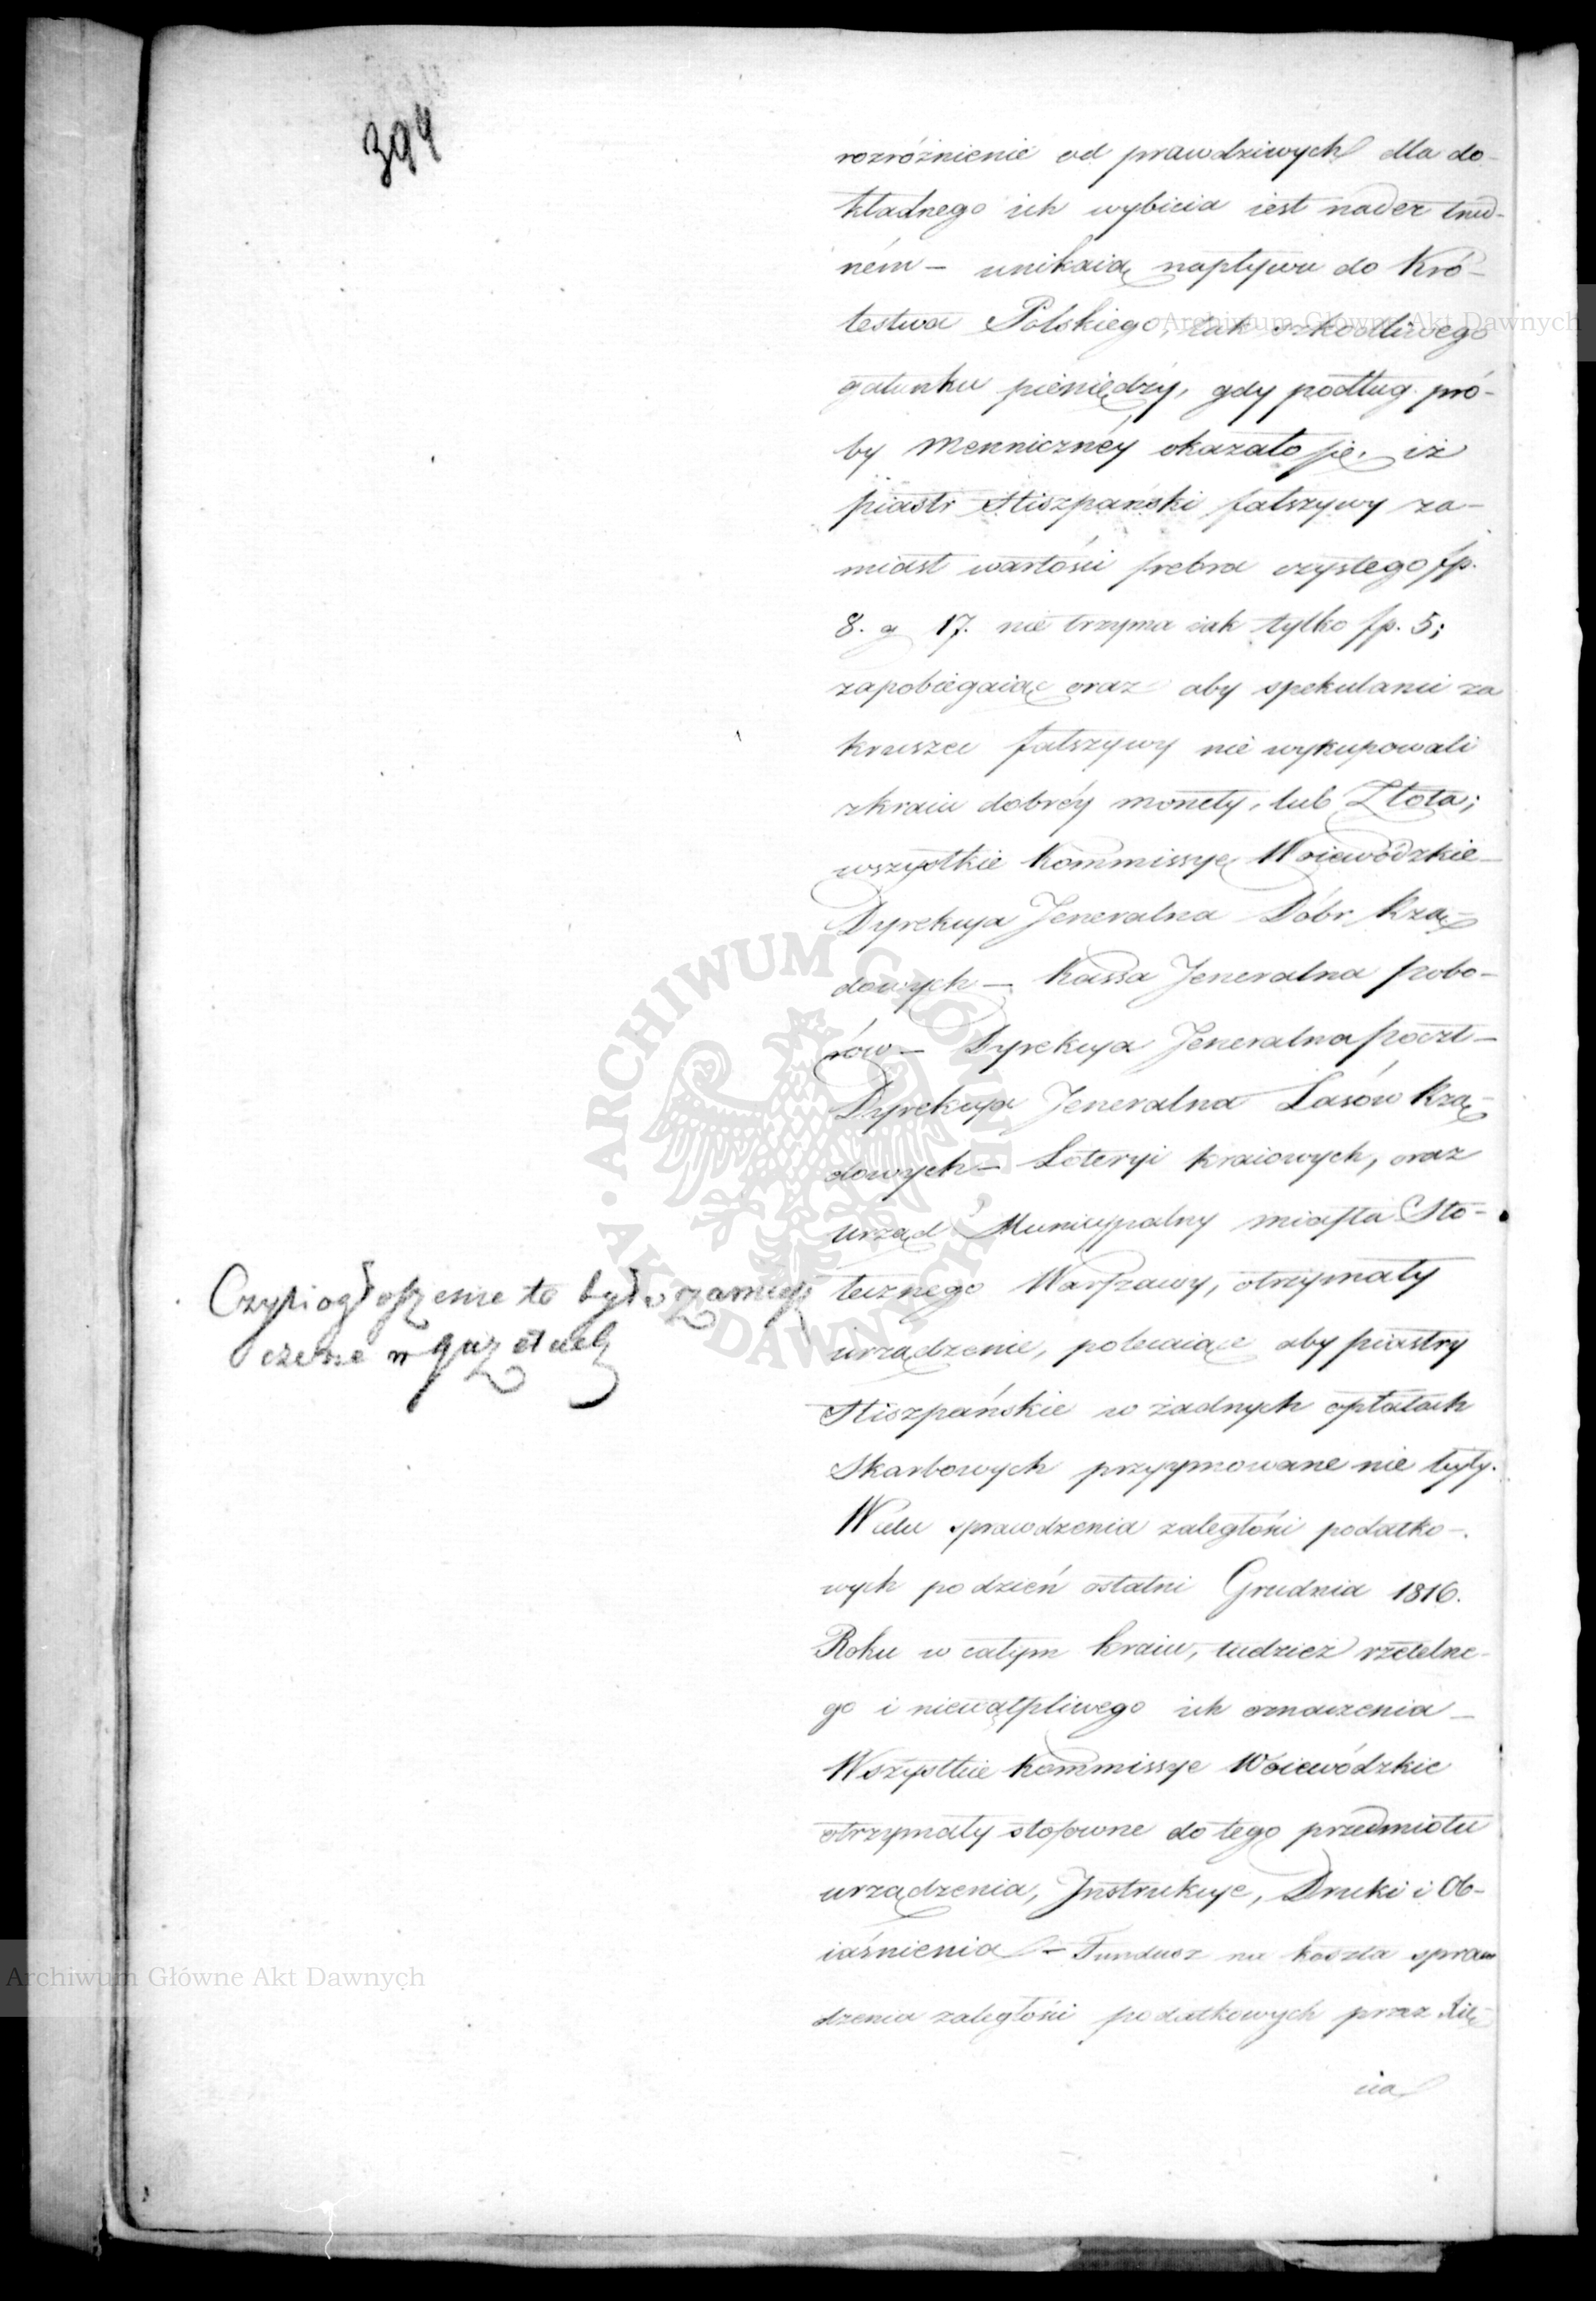 394
rozróżnienie od prawdziwych dla do-
kładnego ich wybicia iest nader trud-
ném - unikaiąc napływu do Kró-
lestwa Polskiego, tak szkodliwego
gatunku pieniędzy, gdy podług pró-
by Menniczney okazało się, iż
piastr Hiszpański fałszywy za-
miast wartości srebra czystego fp.
8. g 17. nie trzyma iak tylko fp. 5;
zapobiegaiąc oraz aby spekulanci za
kruszec fałszywy nie wykupowali
zkraiu dobréy monety, lub Złota;
wszystkie Kommissye Woiewódzkie -
Dyrekcya Jeneralna Dóbr Rzą-
dowych - Kassa Jeneralna pobo-
rów - Dyrekcya Jeneralna Poczt -
Dyrekcya Jeneralna Lasów Rzą-
dowych - Loteryi kraiowych, oraz
urząd Municypalny miasta Sto-
łecznego Warszawy, otrzymały
urządzenie, polecaiące aby piastry
Hiszpańskie w żadnych opłatach
Skarbowych przyymowane nie były.
W celu sprawdzenia zaległości podatko-
wych po dzień ostatni Grudnia 1816.
Roku w całym kraiu, tudzież rzetelne-
go i niewątpliwego ich oznaczenia -
Wszystkie Kommissye Woiewódzkie
otrzymały stosowne do tego przedmiotu
urządzenia, Instrukcye, Druki i Ob-
iaśnienia - Fundusz na koszta spraw
dzenia zaległości podatkowych przez Xię
cia
Czyli ogłoszenie to było zamiesz
czone w gazetach
Archiwum Główne Akt Dawnych
ARCHIWUM GŁÓWNE AKT DAWNYCH
Archiwum Główne Akt Dawnych